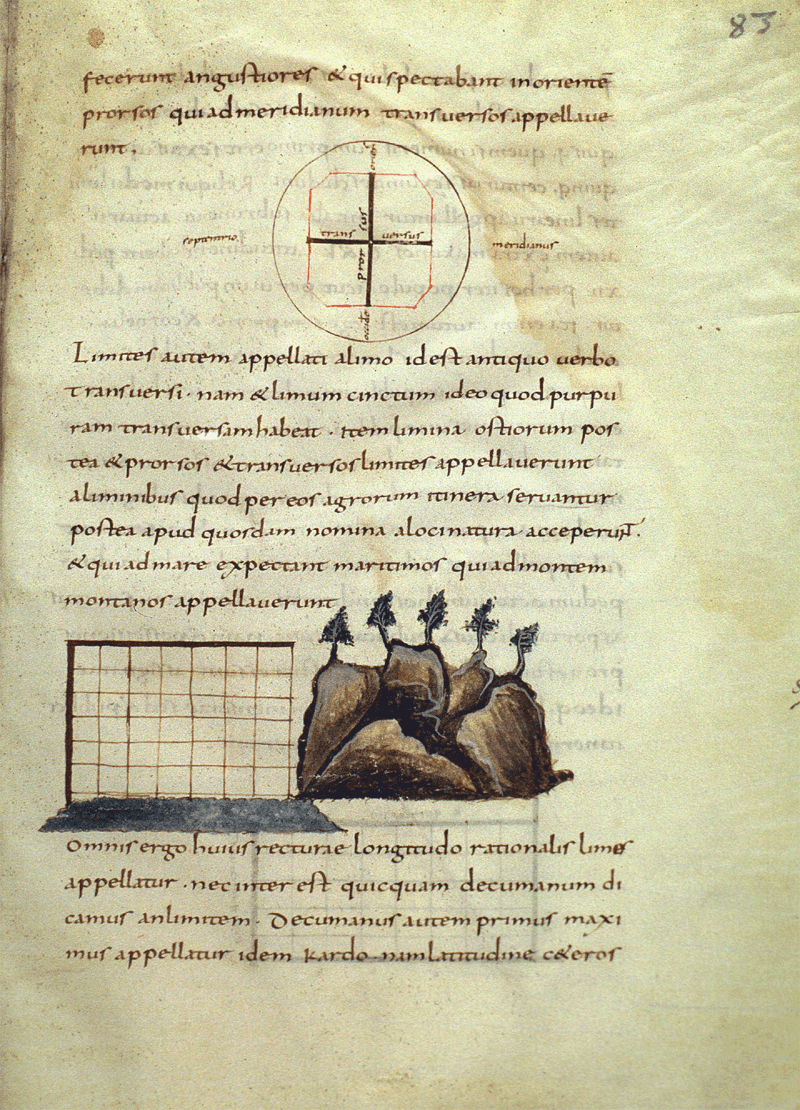 83
fecerunt angustiores & quispectabant inorientē
prorsos quiadmeridianum transversosappellave
runt.
septentrio
trans versus
prorsus
meridianus
Limites autem appellati alimo idest antiquo verbo
transversi · nam & limum cinctum ideo quod purpu
ram transversam habeat · Item limina ostiorum pos
tea & prorsos & transversos limites appellaverunt
aliminibus quod per eos agrorum itinera servantur
postea apud quosdam nomina alocinatura acceperuñt.
& qui ad mare expectant maritimos qui ad montem
montanos appellaverunt
Omnis ergo huius recturae longitudo rationalis limes
appellatur · nec inter est quicquam decumanum di
camus anlimitem · Decumanus autem primus maxi
mus appellatur idem kardo · nam latitudine c&eros